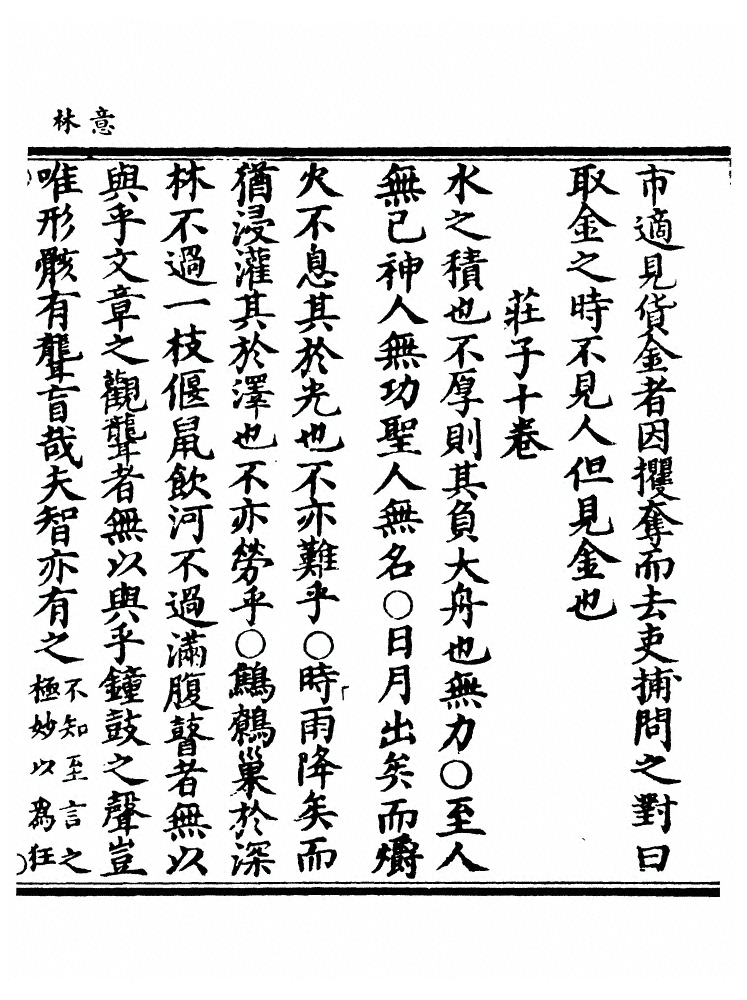 意林
市適見貨金者因攫奪而去吏捕問之對曰
取金之時不見人但見金也
莊子十卷
水之積也不厚則其負大舟也無力○至人
無己神人無功聖人無名○日月出矣而爝
火不息其於光也不亦難乎○時雨降矣而
猶浸灌其於澤也不亦勞乎○鷦鷯巢於深
林不過一枝偃鼠飲河不過滿腹瞽者無以
與乎文章之觀聾者無以與乎鐘鼓之聲豈
唯形骸有聾盲哉夫智亦有之不知至言之極妙以為狂○